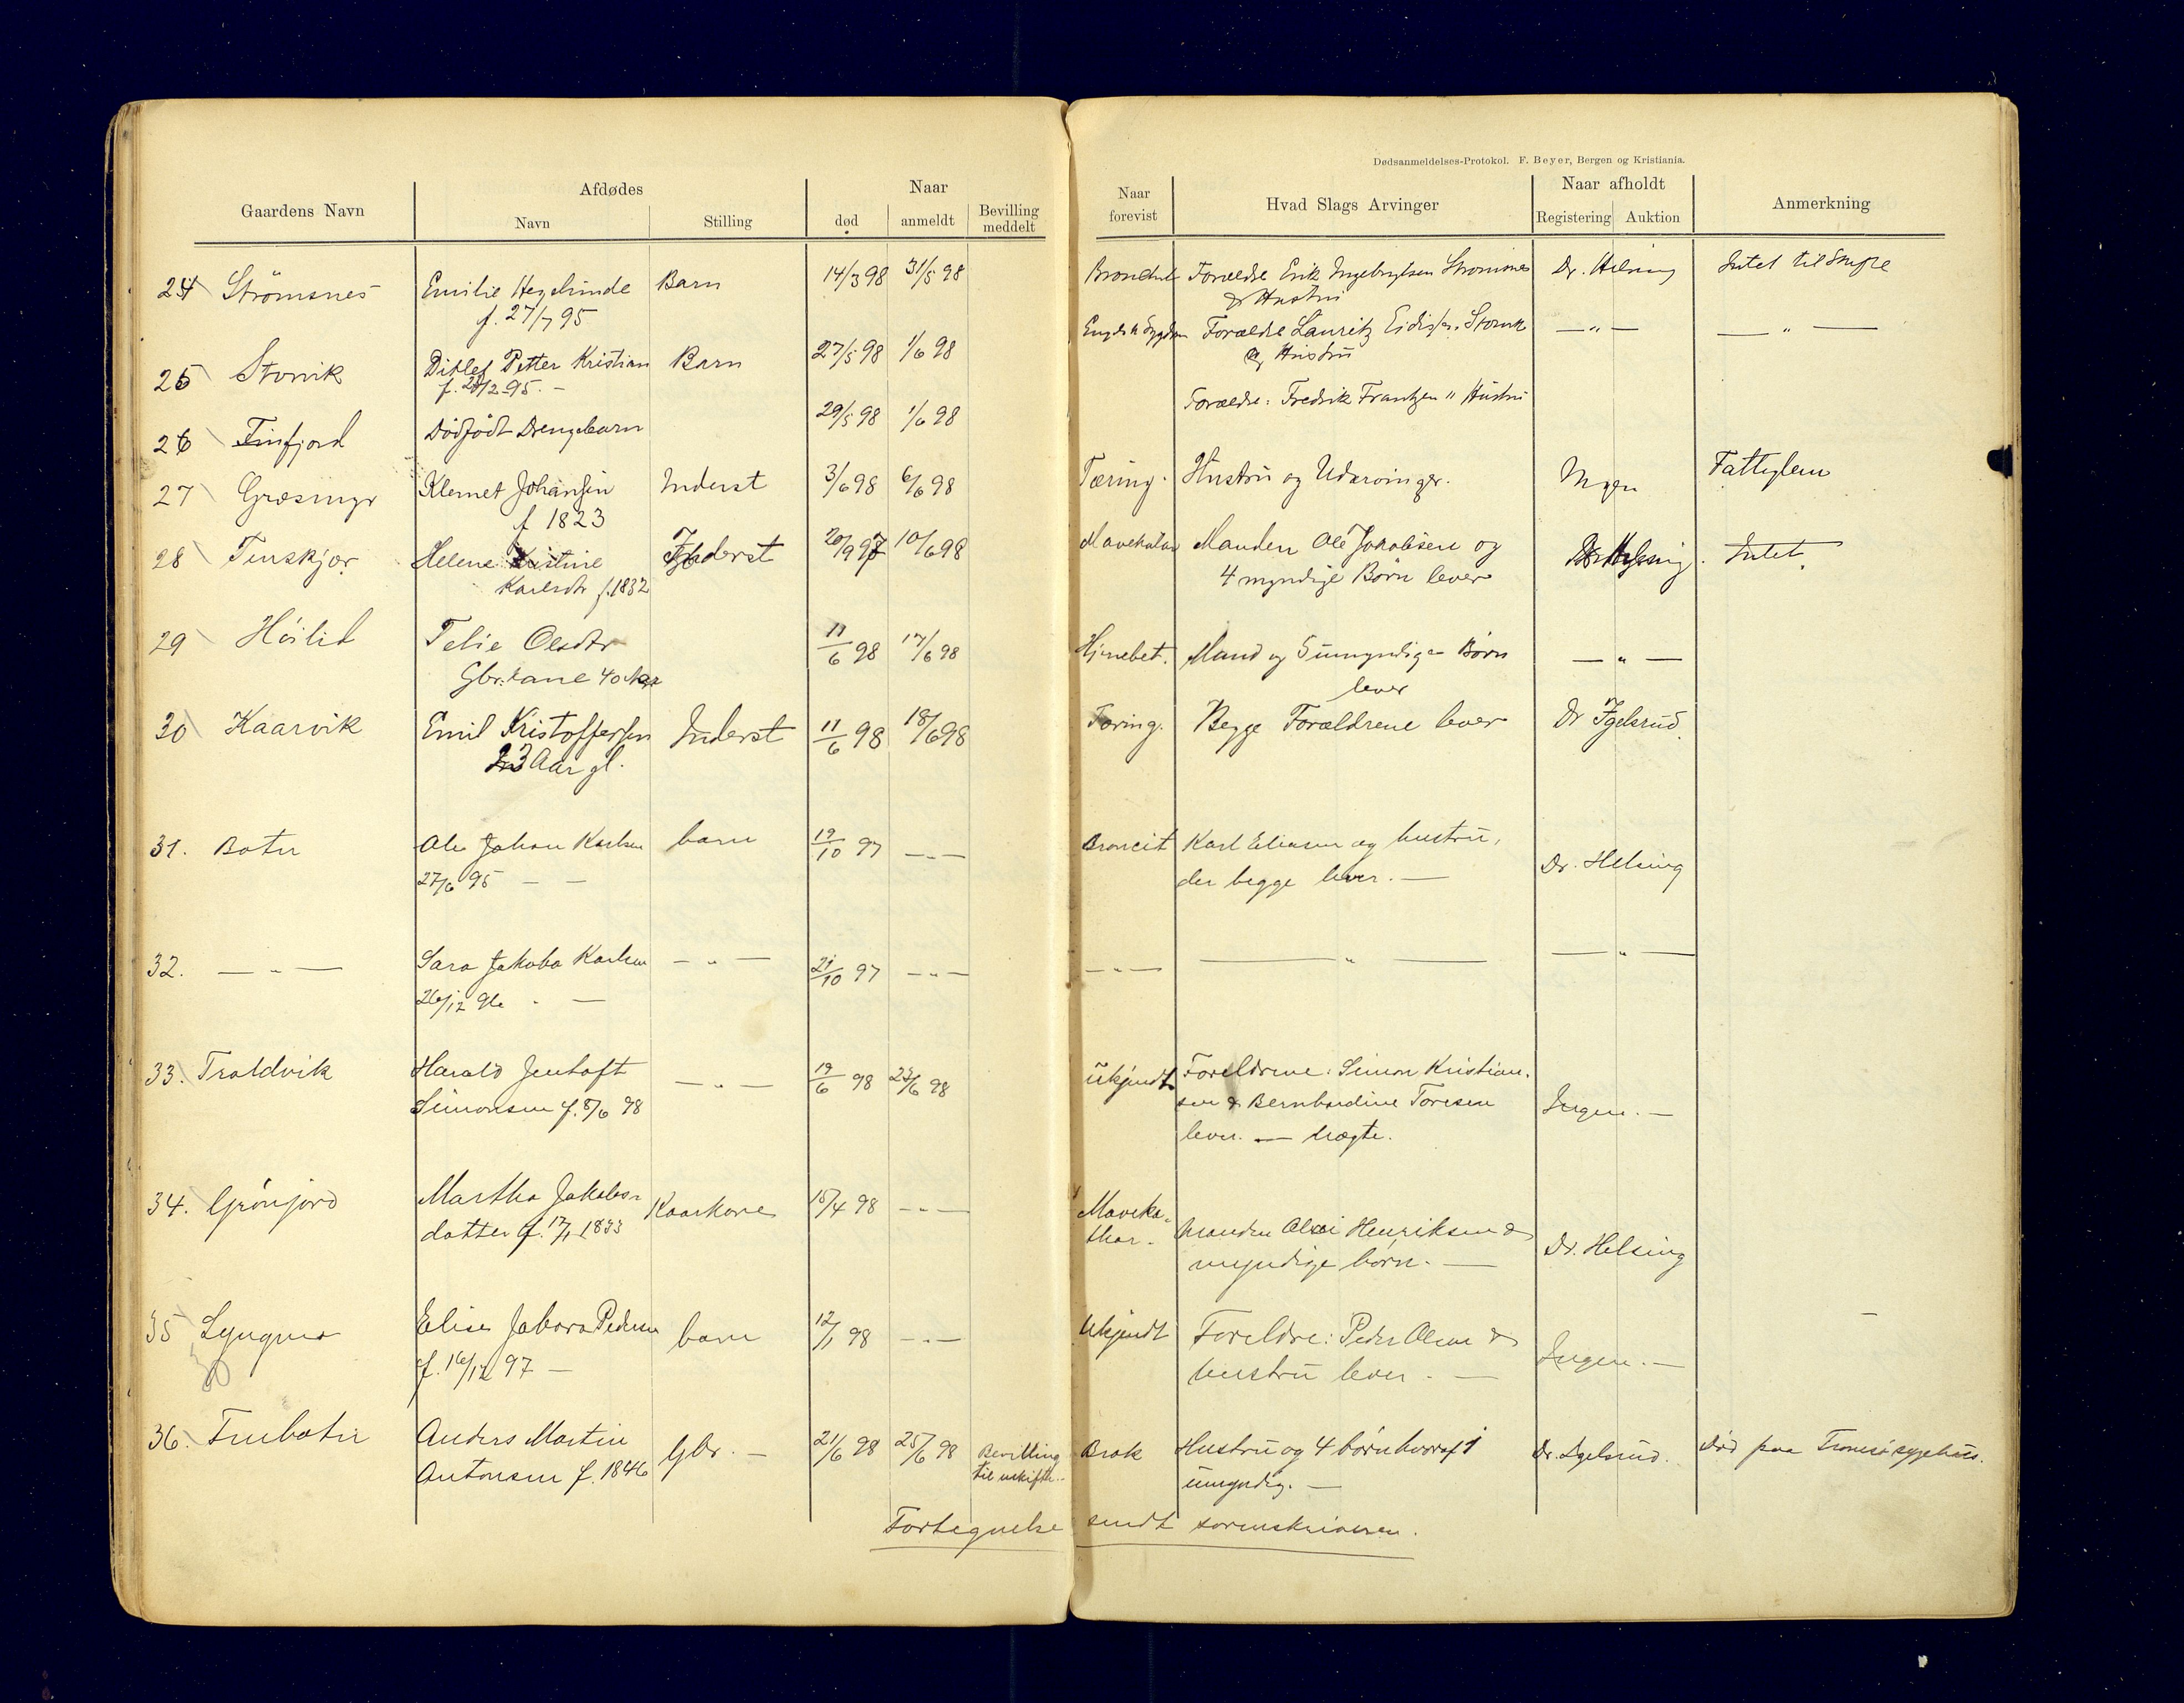 Dødsanmeldelses-Protokol. F. Beyer, Bergen og Kristiania.
Gaardens Navn
Afdødes
Navn
Stilling
Naar
død
anmeldt
Bevilling meddelt
Naar forevist
Hvad Slags Arvinger
Naar afholdt
Registering
Auktion
Anmerkning
24 Strömsnes Emilie Barn 14/3 98 31/5 98 Forældre Erik Strömsnes Dr. Helsing Intet til Skifte
f. 27/7 95 & Hustru
25 Storvik Ditlef Petter Kristian Barn 27/5 98 1/6 98 Forældre Lauritz Storvik — " — — " —
f. og Hustru
26 Finfjord Dödfödt Drengebarn 29/5 98 1/6 98 Forældre: Fredrik Frantzen " Hustru
27 Klemet Johansen Inderst 3/6 98 6/6 98 Tæring. Hustru og Udarvinger. Ingen Fattiglem
f 1823
28 Finskjær Helene Kristine Inderst 20/9 97 10/6 98 Manden Ole Jakobsen og Dr Helsing. Intet.
Karlsdtr f. 1832 4 myndige Børn lever
29 Höilid Olsdtr 11/6 98 17/6 98 Mand og 5 umyndige Börn — " —
40 Aar lever
30 Kaarvik Emil Kristoffersen Inderst 11/6 98 18/6 98 Tæring. Begge Forældrene lever Dr Igelsrud.
23 Aar gl.
31. Botn Ole Johan Karlsen barn 19/10 97 — " — Broncit Karl Eliasen og hustru, Dr. Helsing
27/6 95 — — der begge lever. —
32. — " — Sara Jakoba Karlsen — " — 21/10 97 — " — — " — — " — — " —
26/12 96 " —
33. Troldvik Harald Jentoft — " — 19/6 98 23/6 98 ukjendt Foreldrene: Simon Kristian-
Simonsen f. 8/6 98 sen & Bernhardine Toresen Ingen. —
lever. —
34. Grönjord Martha Jakobs- Kaarkone 15/4 98 — " — Maveka-
datter f. 17/1 1833 thar. Manden Henriksen & Dr. Helsing
myndige börn. —
35 Elise Pedersen barn 12/1 98 — " — Ukjendt Foreldre: Peder Olsen & Ingen. —
f. 16/12 97 — hustru lever. —
36. Finbotn Anders Martin Gbr. — 21/6 98 25/6 98 Bevilling Brok Hustru og 4 børn hvoraf 1 Dr. Igelsrud. Død paa Tromsø sygehus.
Antonsen f. 1846 til uskifte. umyndig. —
Fortegnelse sendt sorenskriveren.